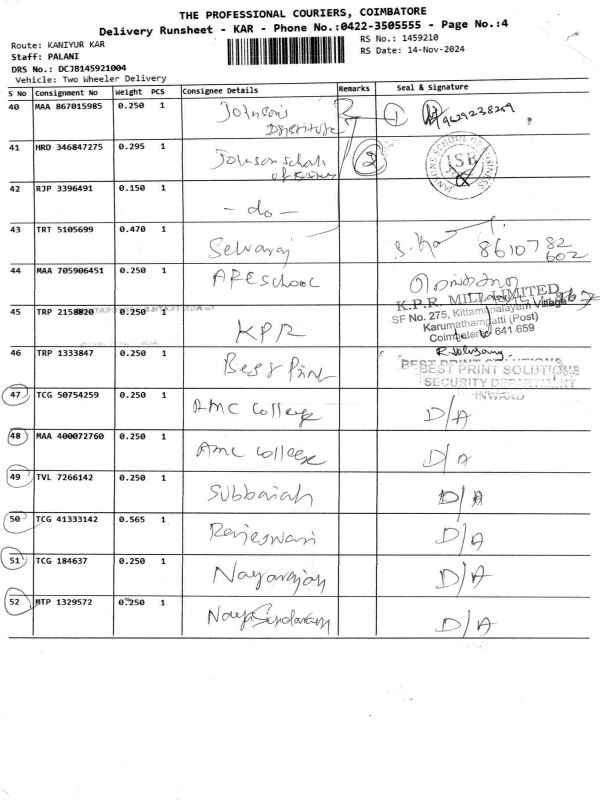 THE PROFESSIONAL COURIERS, COIMBATORE
Delivery Runsheet - KAR - Phone No.:0422-3505555 - Page No.:4
Route: KANIYUR KAR
RS No.: 1459210
Staff: PALANI
RS Date: 14-Nov-2024
DRS No.: DCJB145921004
Vehicle: Two Wheeler Delivery
S No Consignment No Weight PCS Consignee Details Remarks Seal & Signature
40 MAA 867015985 0.250 1 Johnson's 1 9629238259
41 HRD 346847275 0.295 1 Johnson 2
of Business
JANSONS SCHOOL OF BUSINESS
JSB
42 RJP 3396491 0.150 1 - do -
43 TRT 5105699 0.470 1 Selvaraj 8610782
602
44 MAA 705906451 0.250 1 APE School
45 TRP 2158820 0.250 1 KPR
K.P.R. MILL LIMITED
SF No. 275, Kittampalayam Village
Karumathampatti (Post)
Coimbatore 641 659
46 TRP 1333847 0.250 1 Best Print
BEST PRINT SOLUTIONS
SECURITY DEPARTMENT
INWARD
47 TCG 50754259 0.250 1 AMC College D/A
48 MAA 400072760 0.250 1 AMC College D/A
49 TVL 7266142 0.250 1 Subbaiah D/A
50 TCG 41333142 0.565 1 Rajeswari D/A
51 TCG 184637 0.250 1 Nagarajan D/A
52 MTP 1329572 0.250 1 D/A